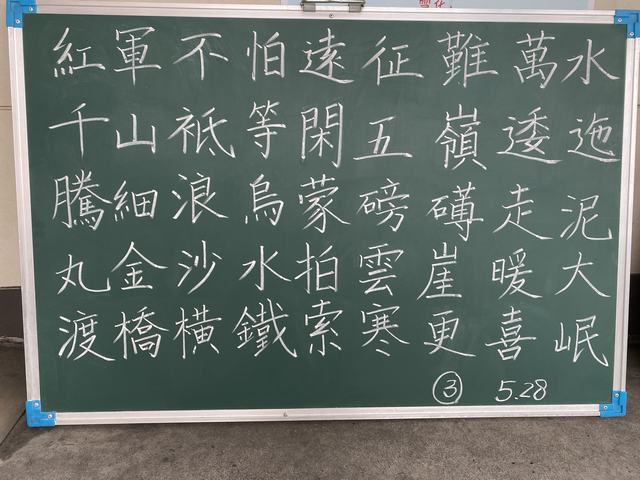 紅軍不怕遠征難萬水
千山袛等閑五嶺逶迤
騰細浪烏蒙磅礴走泥
丸金沙水拍雲崖暖大
渡橋橫鐵索寒更喜岷
③ 5.28